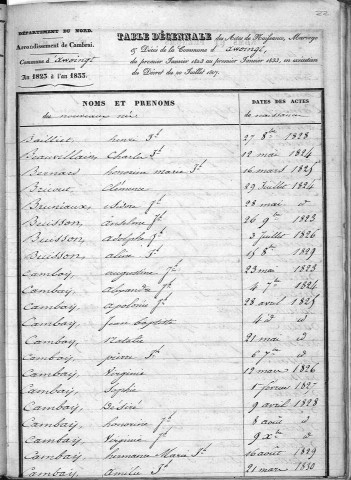 22
DÉPARTEMENT DU NORD.
Arrondissement de Cambrai.
Commune d'awoingt
An 1823 à l'an 1833.
TABLE DÉCENNALE des Actes de Naissance, Mariage
& Décès de la Commune d'awoingt,
du premier Janvier 1823 au premier Janvier 1833, en exécution
du Décret du 20 Juillet 1807.
NOMS ET PRENOMS
des nouveaux nés
DATES DES ACTES
de naissance
Bailliet henri Jh 27 8bre 1828
Beauvillain Charles Jh 12 mai 1824
Bernars honorine marie Jh 16 mars 1825
Clémence 29 Juillet 1824
Bruniaux Jh 28 mai d
Buisson anselme Jh 26 9bre 1823
Buisson adolphe Jh 3 Juillet 1826
Buisson Jh 15 8bre 1829
Cambay augustine Jh 23 mai 1823
Cambay alexandre Jh 4 7bre 1824
Cambay apolinie Jh 28 avril 1825
Cambay Jean baptiste 4 d d
Cambay Natalie 21 mai d
Cambay pierre Jh 6 7bre d
Cambay Virginie 12 mars 1826
Cambay Sophie 1 février 1827
Cambay Désiré 9 avril 1828
Cambay honorine Jh 8 août d
Cambay Virginie Jh 9 Xbre d
Cambay hermance Marie Jh 16 août 1829
Cambay amélie Jh 21 mars 1830